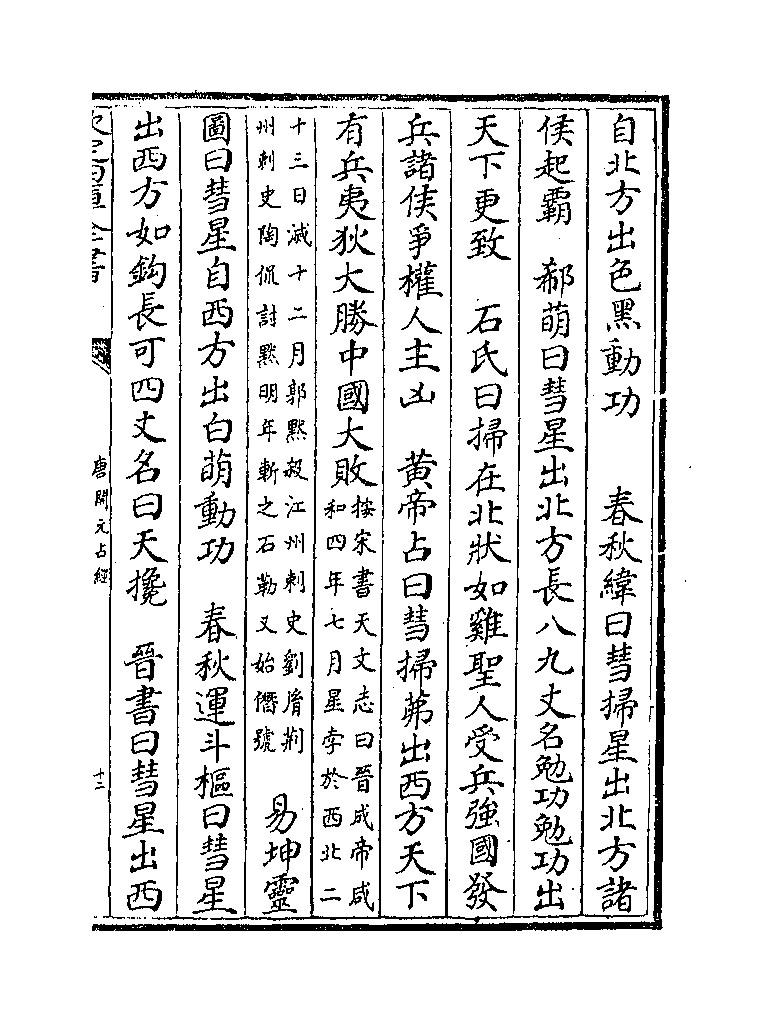 自北方出色黑動功　春秋緯曰彗掃星出北方諸
侯起霸　郗萌曰彗星出北方長八九丈名勉功勉功出
天下更致　石氏曰掃在北狀如雞聖人受兵強國發
兵諸侯爭權人主凶　黄帝占曰彗掃茀出西方天下
有兵夷狄大勝中國大敗按宋書天文志曰晉成帝咸
和四年七月星孛於西北二
十三日滅十二月郭黙殺江州刺史劉胤荆
州刺史陶侃討黙明年斬之石勒又始僭號　易坤靈
圖曰彗星自西方出白萌動功　春秋運斗樞曰彗星
出西方如鈎長可四丈名曰天攙　晉書曰彗星出西
唐開元占經
十二